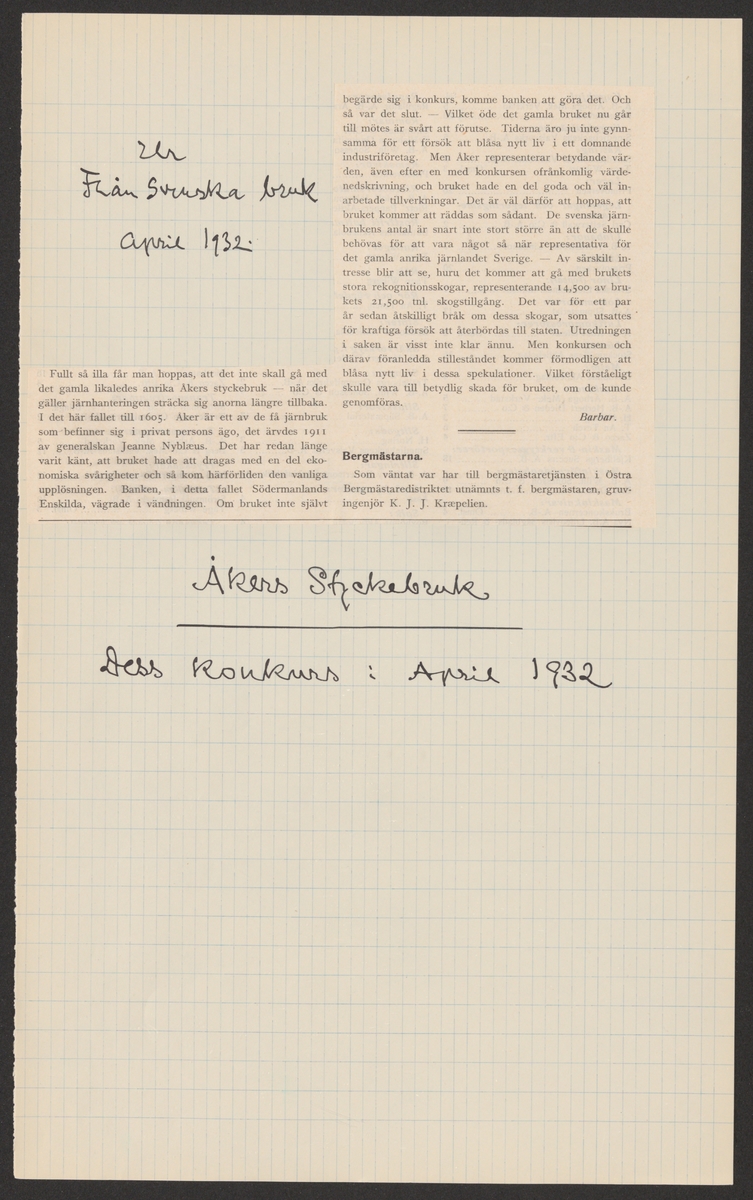 Ur
Från Svenska bruk
April 1932.
Fullt så illa får man hoppas, att det inte skall gå med
det gamla likaledes anrika Åkers styckebruk — när det
gäller järnhanteringen sträcka sig anorna längre tillbaka.
I det här fallet till 1605. Åker är ett av de få järnbruk
som befinner sig i privat persons ägo, det ärvdes 1911
av generalskan Jeanne Nyblæus. Det har redan länge
varit känt, att bruket hade att dragas med en del eko-
nomiska svårigheter och så kom härförliden den vanliga
upplösningen. Banken, i detta fallet Södermanlands
Enskilda, vägrade i vändningen. Om bruket inte självt
begärde sig i konkurs, komme banken att göra det. Och
så var det slut. — Vilket öde det gamla bruket nu går
till mötes är svårt att förutse. Tiderna äro ju inte gynn-
samma för ett försök att blåsa nytt liv i ett domnande
industriföretag. Men Åker representerar betydande vär-
den, även efter en med konkursen ofrånkomlig värde-
nedskrivning, och bruket hade en del goda och väl in-
arbetade tillverkningar. Det är väl därför att hoppas, att
bruket kommer att räddas som sådant. De svenska järn-
brukens antal är snart inte stort större än att de skulle
behövas för att vara något så när representativa för
det gamla anrika järnlandet Sverige. — Av särskilt in-
tresse blir att se, huru det kommer att gå med brukets
stora rekognitionsskogar, representerande 14,500 av bru-
kets 21,500 tnl. skogstillgång. Det var för ett par
år sedan åtskilligt bråk om dessa skogar, som utsattes
för kraftiga försök att återbördas till staten. Utredningen
i saken är visst inte klar ännu. Men konkursen och
därav föranledda stilleståndet kommer förmodligen att
blåsa nytt liv i dessa spekulationer. Vilket förståeligt
skulle vara till betydlig skada för bruket, om de kunde
genomföras.
Barbar.
Bergmästarna.
Som väntat var har till bergmästaretjänsten i Östra
Bergmästaredistriktet utnämnts t. f. bergmästaren, gruv-
ingenjör K. J. J. Kræpelien.
Åkers Styckebruk
Dess konkurs i April 1932